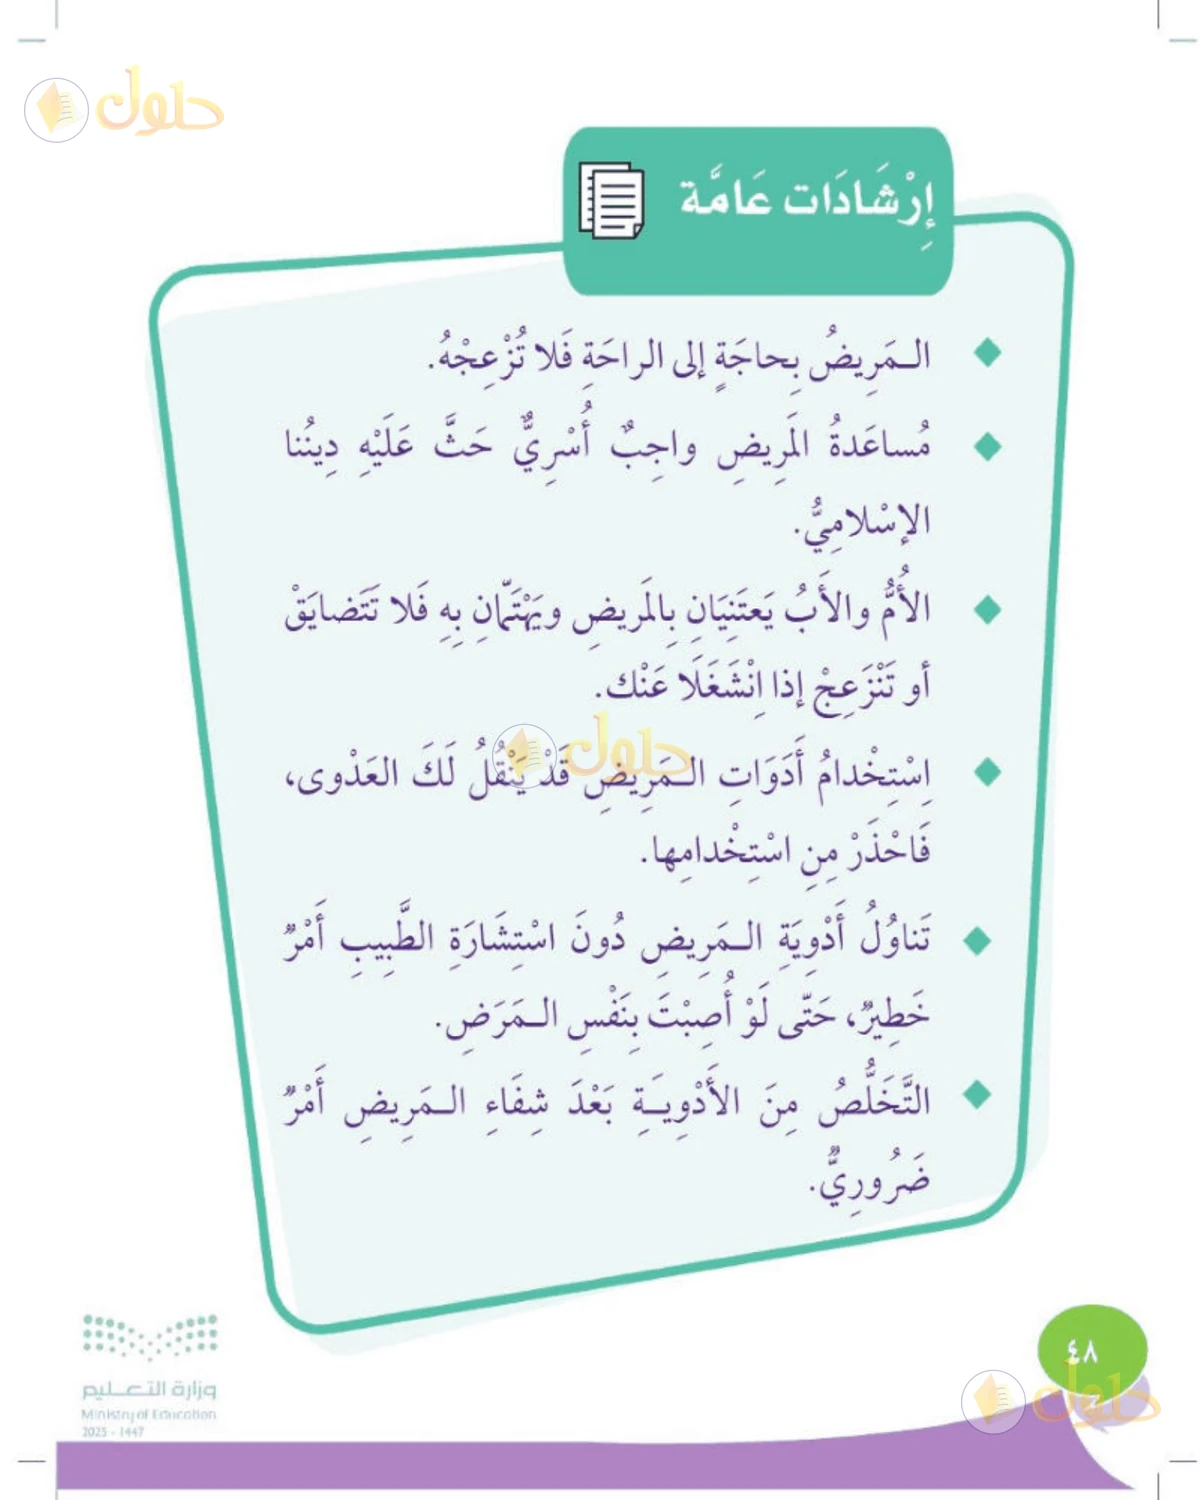 حلول
إِرْشَادَات عَامَّة
الـمَرِيضُ بِحاجَةٍ إلى الراحَةِ فَلا تُزْعِجْهُ.
مُساعَدةُ المَرِيضِ واجِبٌ أُسْرِيٌّ حَثَّ عَلَيْهِ دِينُنا
الإسْلامِيُّ.
الأُمُّ والأَبُ يَعتَنِيَانِ بِالمَريضِ ويَهْتَمّانِ بِهِ فَلا تَتَضايَقْ
أو تَنْزَعِجْ إذا اِنْشَغَلَا عَنْك.
حلول
اِسْتِخْدامُ أَدَوَاتِ الـمَرِيضِ قَدْ يَنْقُلُ لَكَ العَدْوى،
فَاحْذَرْ مِنِ اسْتِخْدامِها.
تَناوُلُ أَدْوِيَةِ الـمَرِيضِ دُونَ اسْتِشَارَةِ الطَّبِيبِ أَمْرٌ
خَطِيرٌ، حَتّى لَوْ أُصِبْتَ بِنَفْسِ الـمَرَضِ.
التَّخَلُّصُ مِنَ الأَدْوِيَـةِ بَعْدَ شِفَاءِ الـمَرِيضِ أَمْرٌ
ضَرُورِيٌّ.
٤٨
حلول
وزارة التعـليم
Ministry of Education
2025 - 1447